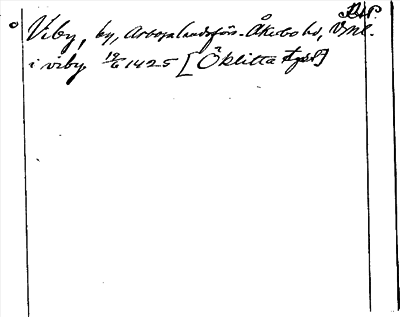 Viby, by, Arboga landsförs. Åkerbo hd, Vml.
i viby 19/6 1425 [Öklitta